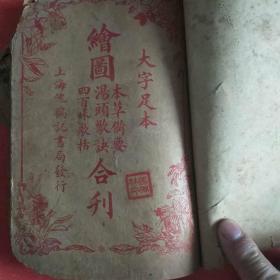 大字足本
繪圖
本草備要
湯頭歌訣
四百味歌括
合刊
上海廣益書局發行